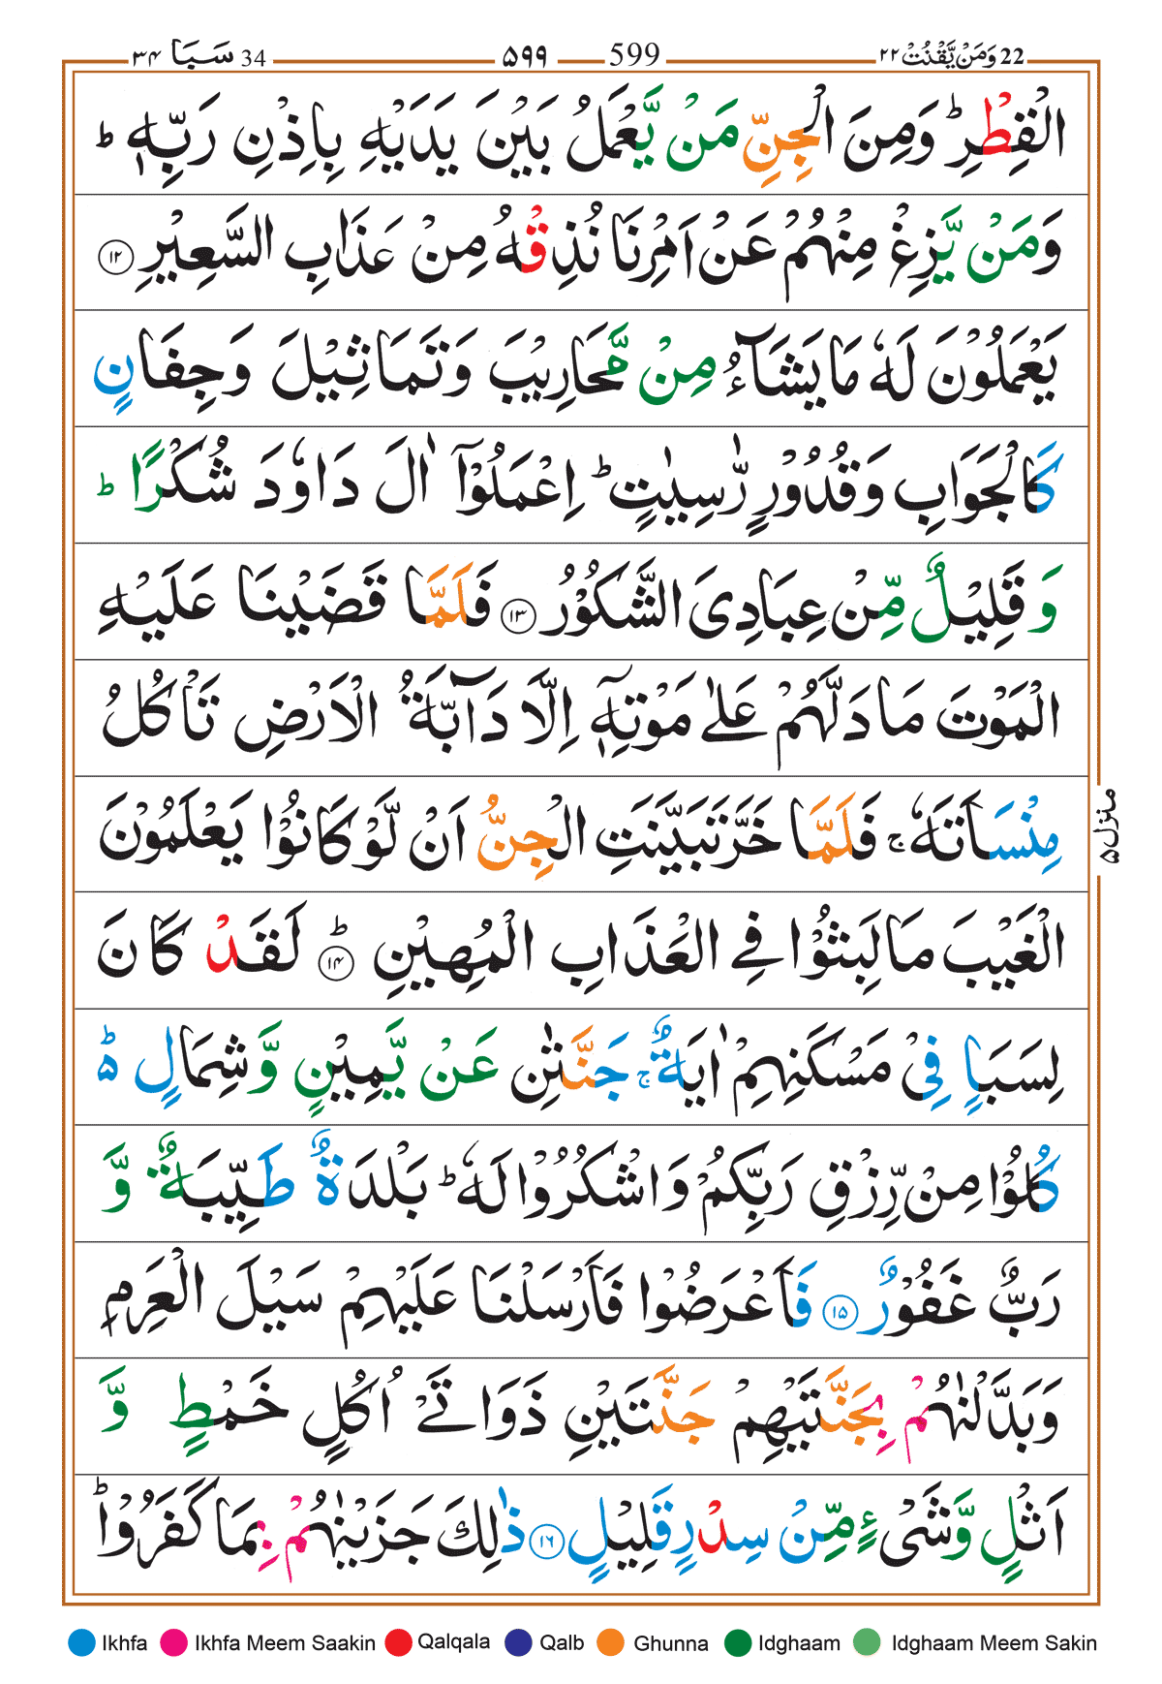 22 وَمَنۡ يَّقۡنُتۡ ٢٢ 599 ۵۹۹ 34 سَـبَا ۳۴
الۡقِطۡرِ ؕ وَمِنَ الۡجِنِّ مَنۡ يَّعۡمَلُ بَيۡنَ يَدَيۡهِ بِاِذۡنِ رَبِّهٖ ؕ
وَمَنۡ يَّزِغۡ مِنۡهُمۡ عَنۡ اَمۡرِنَا نُذِقۡهُ مِنۡ عَذَابِ السَّعِيۡرِ ۝۱۲
يَعۡمَلُوۡنَ لَهٗ مَا يَشَآءُ مِنۡ مَّحَارِيۡبَ وَتَمَاثِيۡلَ وَجِفَانٍ
كَالۡجَوَابِ وَقُدُوۡرٍ رّٰسِيٰتٍ ؕ اِعۡمَلُوۡۤا اٰلَ دَاوٗدَ شُكۡرًا ؕ
وَقَلِيۡلٌ مِّنۡ عِبَادِىَ الشَّكُوۡرُ ۝۱۳ فَلَمَّا قَضَيۡنَا عَلَيۡهِ
الۡمَوۡتَ مَا دَلَّهُمۡ عَلٰى مَوۡتِهٖۤ اِلَّا دَآبَّةُ الۡاَرۡضِ تَاۡكُلُ
مِنۡسَاَتَهٗ ۚ فَلَمَّا خَرَّ تَبَيَّنَتِ الۡجِنُّ اَنۡ لَّوۡ كَانُوۡا يَعۡلَمُوۡنَ
الۡغَيۡبَ مَا لَبِثُوۡا فِى الۡعَذَابِ الۡمُهِيۡنِ ؕ ۝۱۴ لَقَدۡ كَانَ
لِسَبَاٍ فِىۡ مَسۡكَنِهِمۡ اٰيَةٌ ۚ جَنَّتٰنِ عَنۡ يَّمِيۡنٍ وَّشِمَالٍ ؕ۬
كُلُوۡا مِنۡ رِّزۡقِ رَبِّكُمۡ وَاشۡكُرُوۡا لَهٗ ؕ بَلۡدَةٌ طَيِّبَةٌ وَّ
رَبٌّ غَفُوۡرٌ ۝۱۵ فَاَعۡرَضُوۡا فَاَرۡسَلۡنَا عَلَيۡهِمۡ سَيۡلَ الۡعَرِمِ
وَبَدَّلۡنٰهُمۡ بِجَنَّتَيۡهِمۡ جَنَّتَيۡنِ ذَوَاتَىۡ اُكُلٍ خَمۡطٍ وَّ
اَثۡلٍ وَّشَىۡءٍ مِّنۡ سِدۡرٍ قَلِيۡلٍ ۝۱۶ ذٰلِكَ جَزَيۡنٰهُمۡ بِمَا كَفَرُوۡا ؕ
منزل ۵
Ikhfa Ikhfa Meem Saakin Qalqala Qalb Ghunna Idghaam Idghaam Meem Sakin